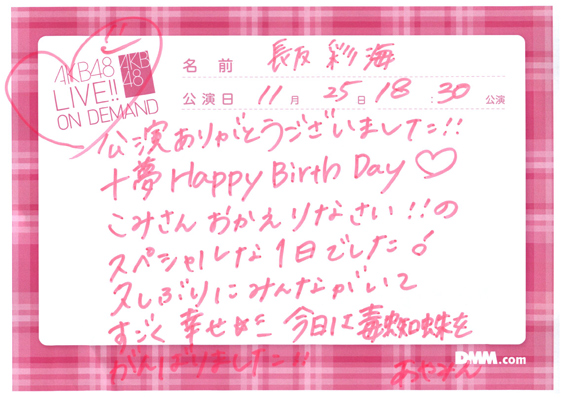 AKB48
LIVE!!
ON DEMAND
AKB
48
名前 長友 彩海
公演日 11月 25日 18:30 公演
公演ありがとうございました!!
十夢 Happy Birth Day♡
こみさん おかえりなさい!!の
スペシャルな1日でした!
久しぶりにみんながいて
すごく幸せ 今日は毒蜘蛛を
がんばりました!!
DMM.com